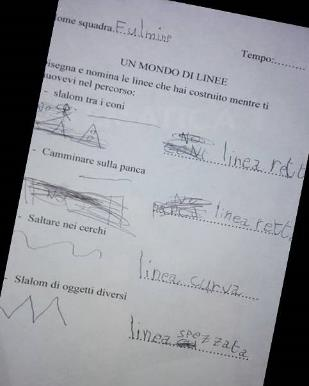 ome squadra Fulmine
Tempo:........
UN MONDO DI LINEE
isegna e nomina le linee che hai costruito mentre ti
uovevi nel percorso:
- slalom tra i coni
linea rett
- Camminare sulla panca
linea rett
- Saltare nei cerchi
linea curva
- Slalom di oggetti diversi
linea spezzata